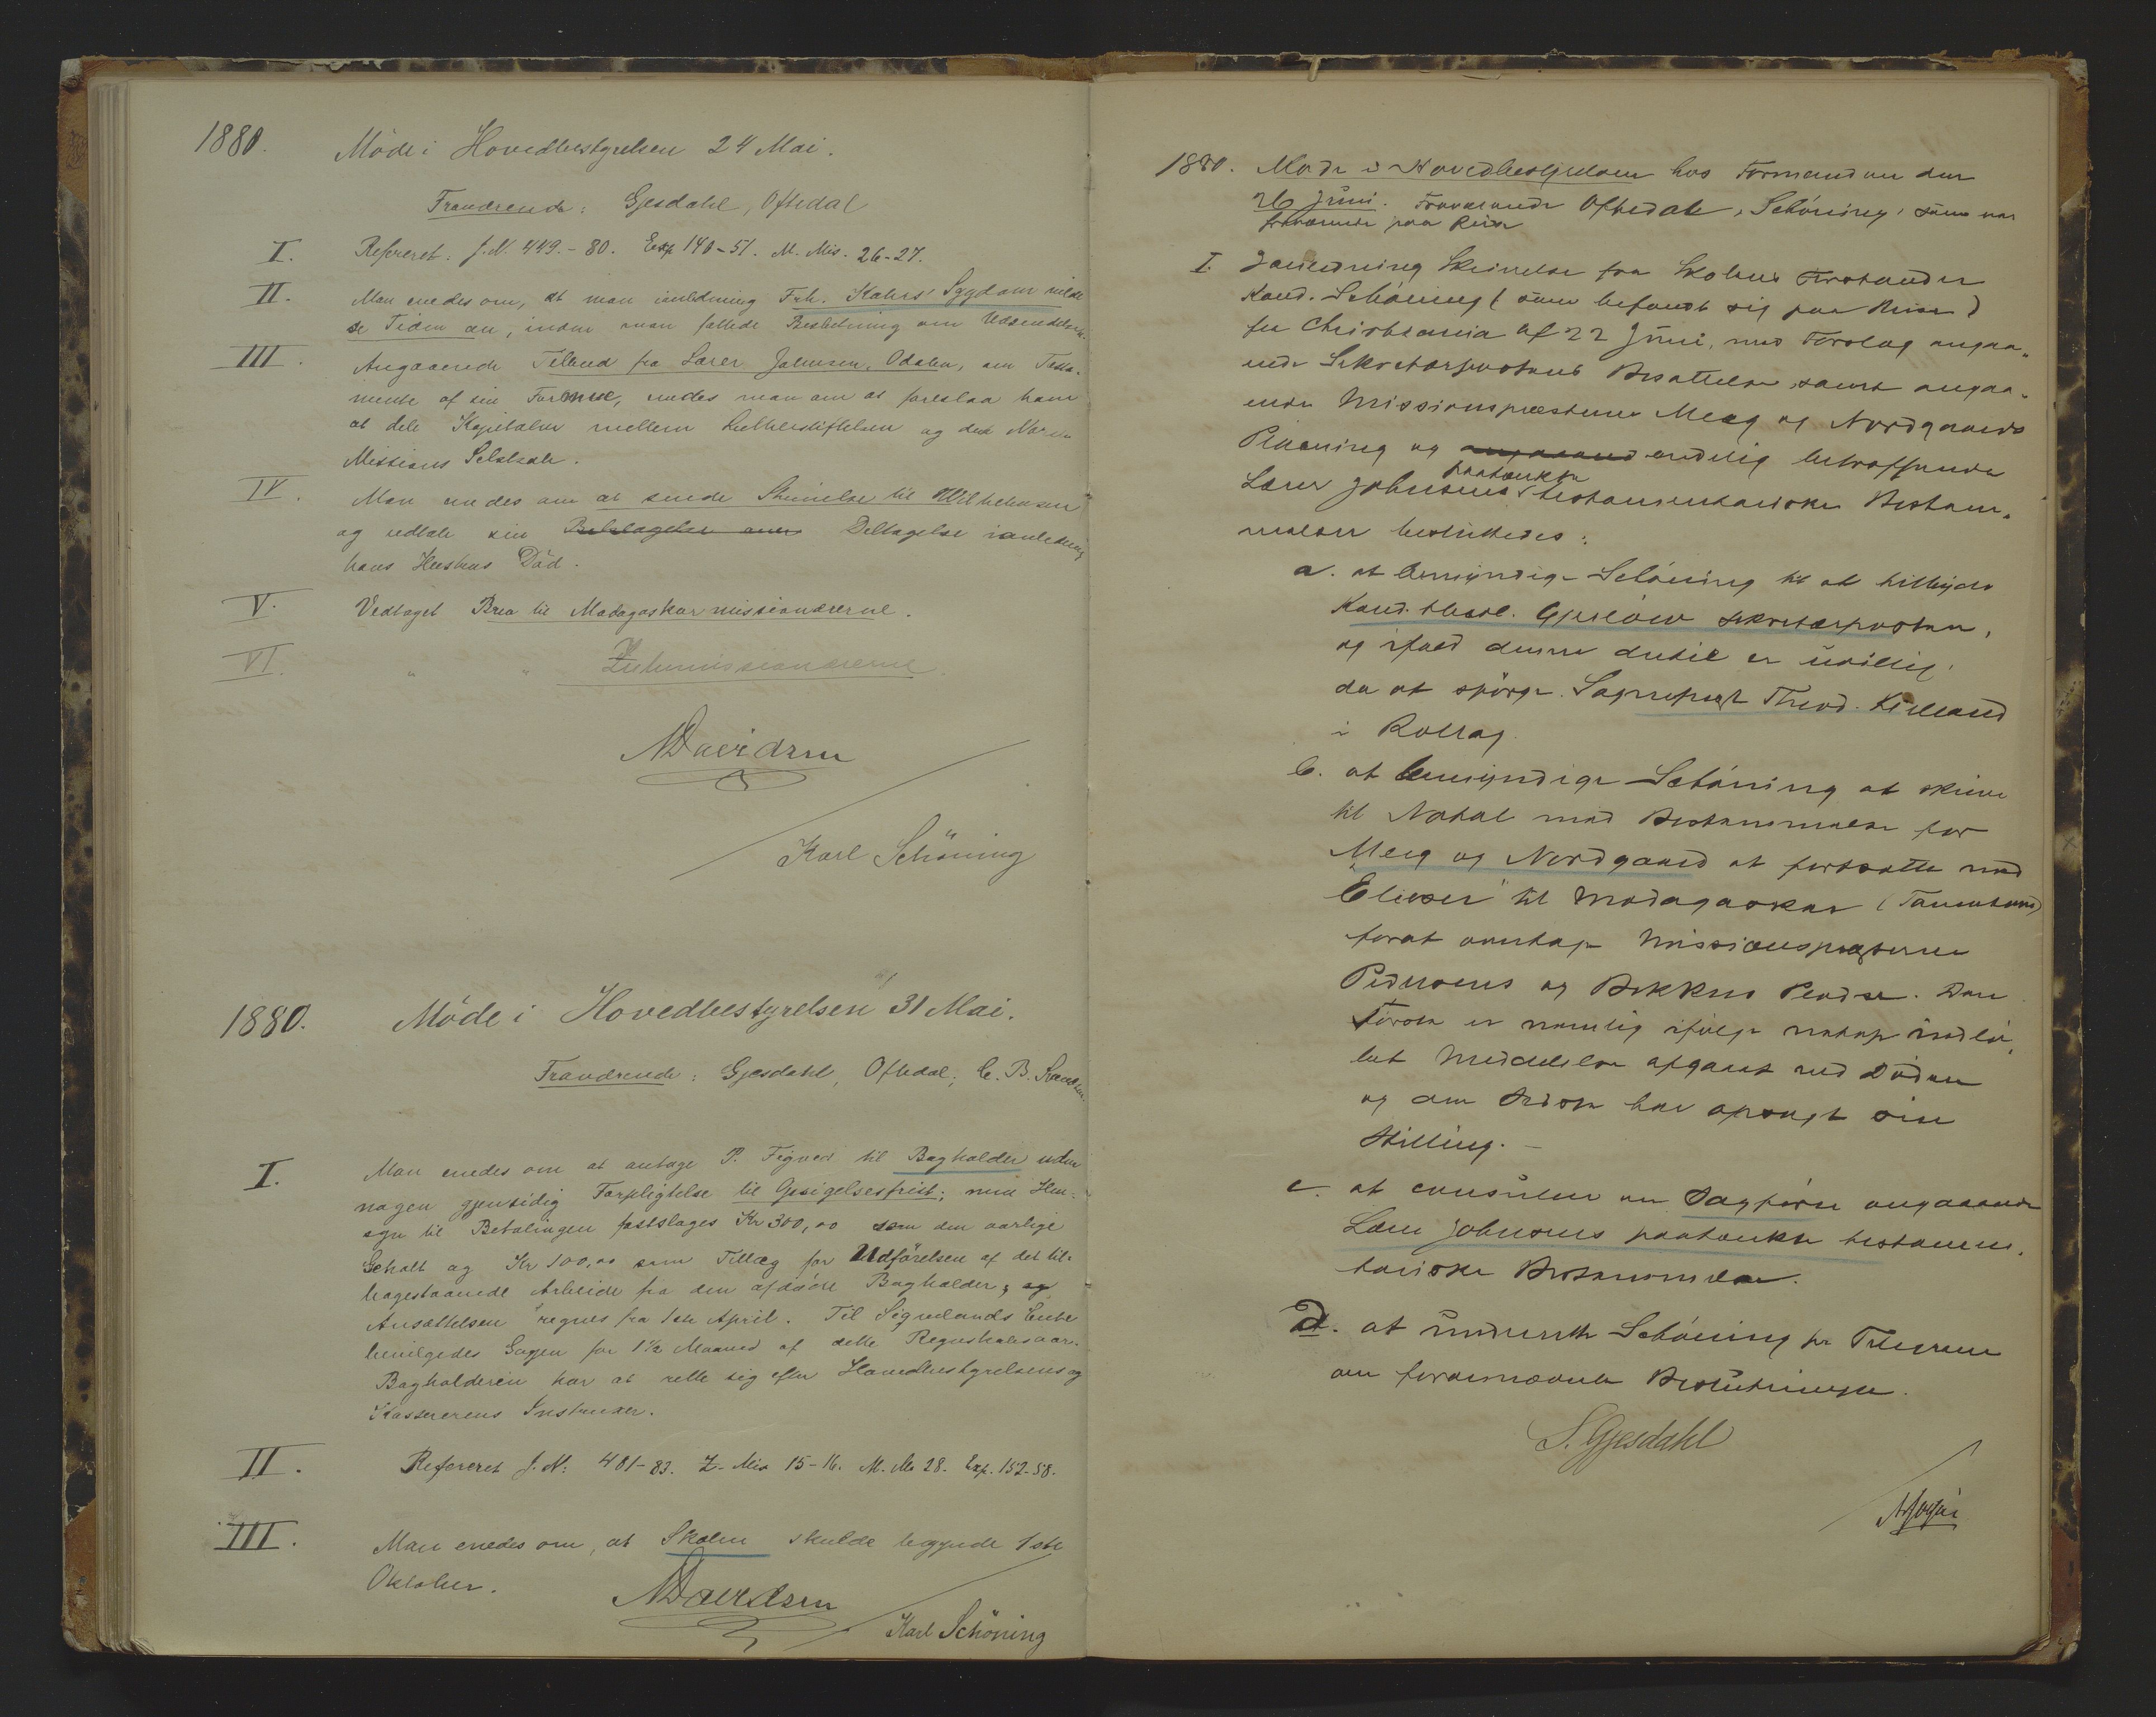 1880. Möde i Hovedbestyrelsen 24 Mai.
Fraværende: Gjesdahl, Oftedal
I. Refereret: J.N. 449.-80. Exp 140-51. M. Mis. 26-27.
II. Man enedes om, at man ianledning Frk. Kahrs' Sygdom vilde
se Tiden an, inden man fattede Beslutning om Udsendelsen.
III. Angaaende Tilbud fra Lærer Johnsen, Odalen, om Testa-
mente af sin Formue, enedes man om at foreslaa ham
at dele Kapitalen mellem Lutherstiftelsen og det Norske
Missions Selskab.
IV. Man enedes om at sende Skrivelse til Wilhelmsen
og udtale sin Beklagelse over Deltagelse ianledning
hans Hustrus Död.
V. Vedtaget Brev til Madagaskarmissionærerne.
VI. " " Zulumissionærerne.
NDavidsen
Karl Schöning
1880. Möde i Hovedbestyrelsen 31 Mai.
Fraværende: Gjesdahl, Oftedal, C. B. Svendsen.
I. Man enedes om at antage P. Figved til Bogholder uden
nogen gjensidig Forpligtelse til Opsigelsesfrist; med Hen-
syn til Betalingen fastslages Kr 300,00 som den aarlige
Gehalt og Kr 100,00 som Tillæg for Udförelsen af det til-
bagestaaende Arbeide fra den afdöde Bogholder, og
Ansættelsen regnes fra 1ste April. Til Sigvelands Enke
bevilgedes Gagen for 1½ Maaned af dette Regnskabsaar.
Bogholderen har at rette sig efter Hovedbestyrelsens og
Kassererens Instruxer.
II. Refereret J. N: 481-83. Z. Mis 15-16. M. Mis 28. Exp. 152-58.
III. Man enedes om, at Skolen skulde begynde 1ste
Oktober.
NDavidsen
Karl Schöning
1880. Möde i Hovedbestyrelsen hos Formanden den
26 Juni. Fraværende Oftedal, Schöning, som var
fraværende paa Reise
I. I anledning Skrivelse fra Skolens Forstander
Kand. Schöning (som befandt sig paa Reise)
fra Christiania af 22 Juni, med Forslag angaa-
ende Sekretærpostens Besættelse, samt angaa-
ende Missionspræsterne Meeg og Nordgaards
Placering og angaaende endelig betræffende
Lærer Johnsens paatænkte testamentariske Bestem-
melser besluttedes:
a. at bemyndige Schöning til at tilbyde
Kand. theol. Gjerlöw Sekretærposten,
og ifald denne dertil er uvillig,
da at spörge Sognepræst Theod. Kielland
i Rollag.
b. at bemyndige Schöning at skrive
til Natal med Bestemmelse for
Meeg og Nordgaard at fortsætte med
"Elieser" til Madagaskar (Tamatave)
forat overtage Missionspræsterne
Pedersens og Bekkers Pladse. Den
Förste er nemlig ifölge netop indlö-
bet Meddelelse afgaaet ved Döden
og den Sidste har opsagt sin
Stilling. —
c. at consulere en Sagförer angaaende
Lærer Johnsens paatænkte testamen-
tariske Bestemmelser.
d. at underrette Schöning pr Telegram
om forannævnte Beslutninger.
S. Gjesdahl